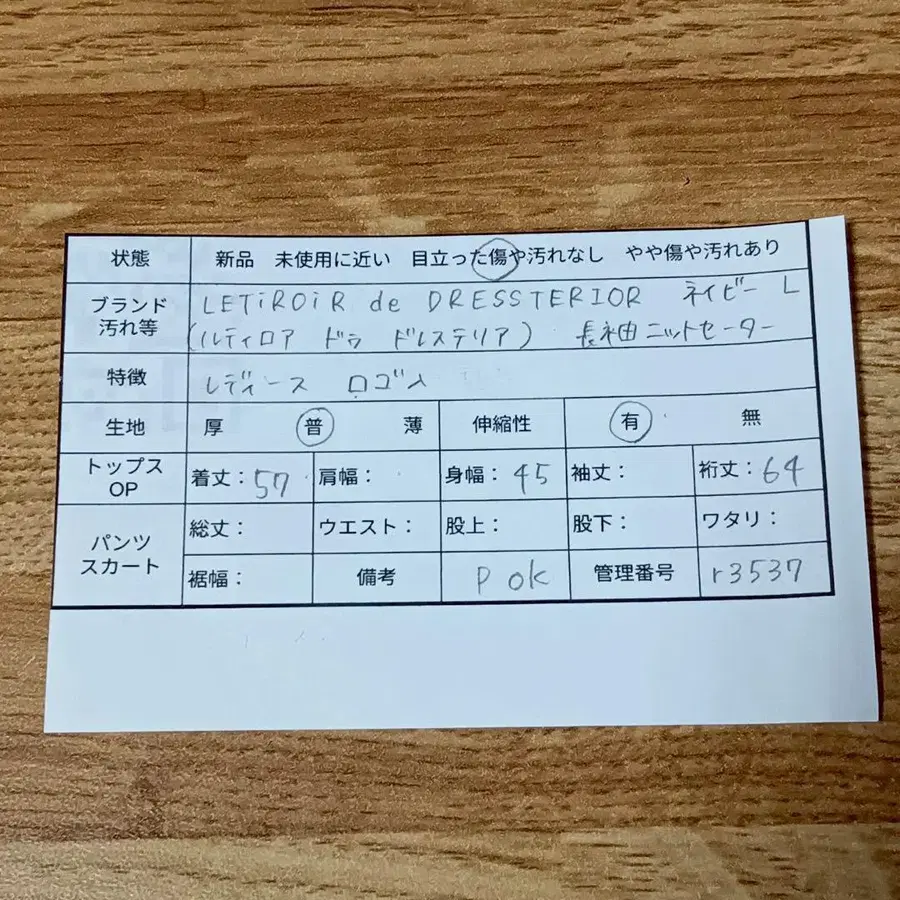 状態 新品 未使用に近い 目立った傷や汚れなし やや傷や汚れあり
ブランド 汚れ等 LETiROiR de DRESSTERIOR ネイビー L
(ルティロア ドゥ ドレステリア) 長袖ニットセーター
特徴 レディース ロゴ入
生地 厚 普 薄 伸縮性 有 無
トップス OP 着丈：57 肩幅： 身幅：45 袖丈： 裄丈：64
パンツ スカート 総丈： ウエスト： 股上： 股下： ワタリ：
裾幅： 備考 P ok 管理番号 r3537